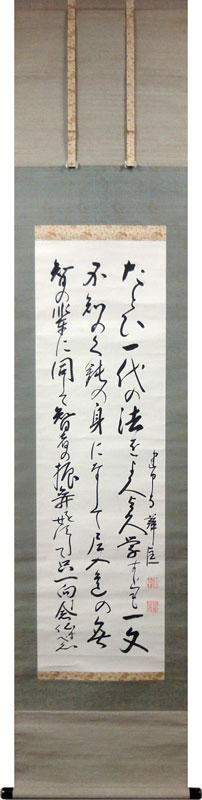 たとひ一代の法をよく〳〵学すとも一文
不知のく鈍の身になして尼入道の無
智の輩に同して智者の振舞 只一向念仏すへし